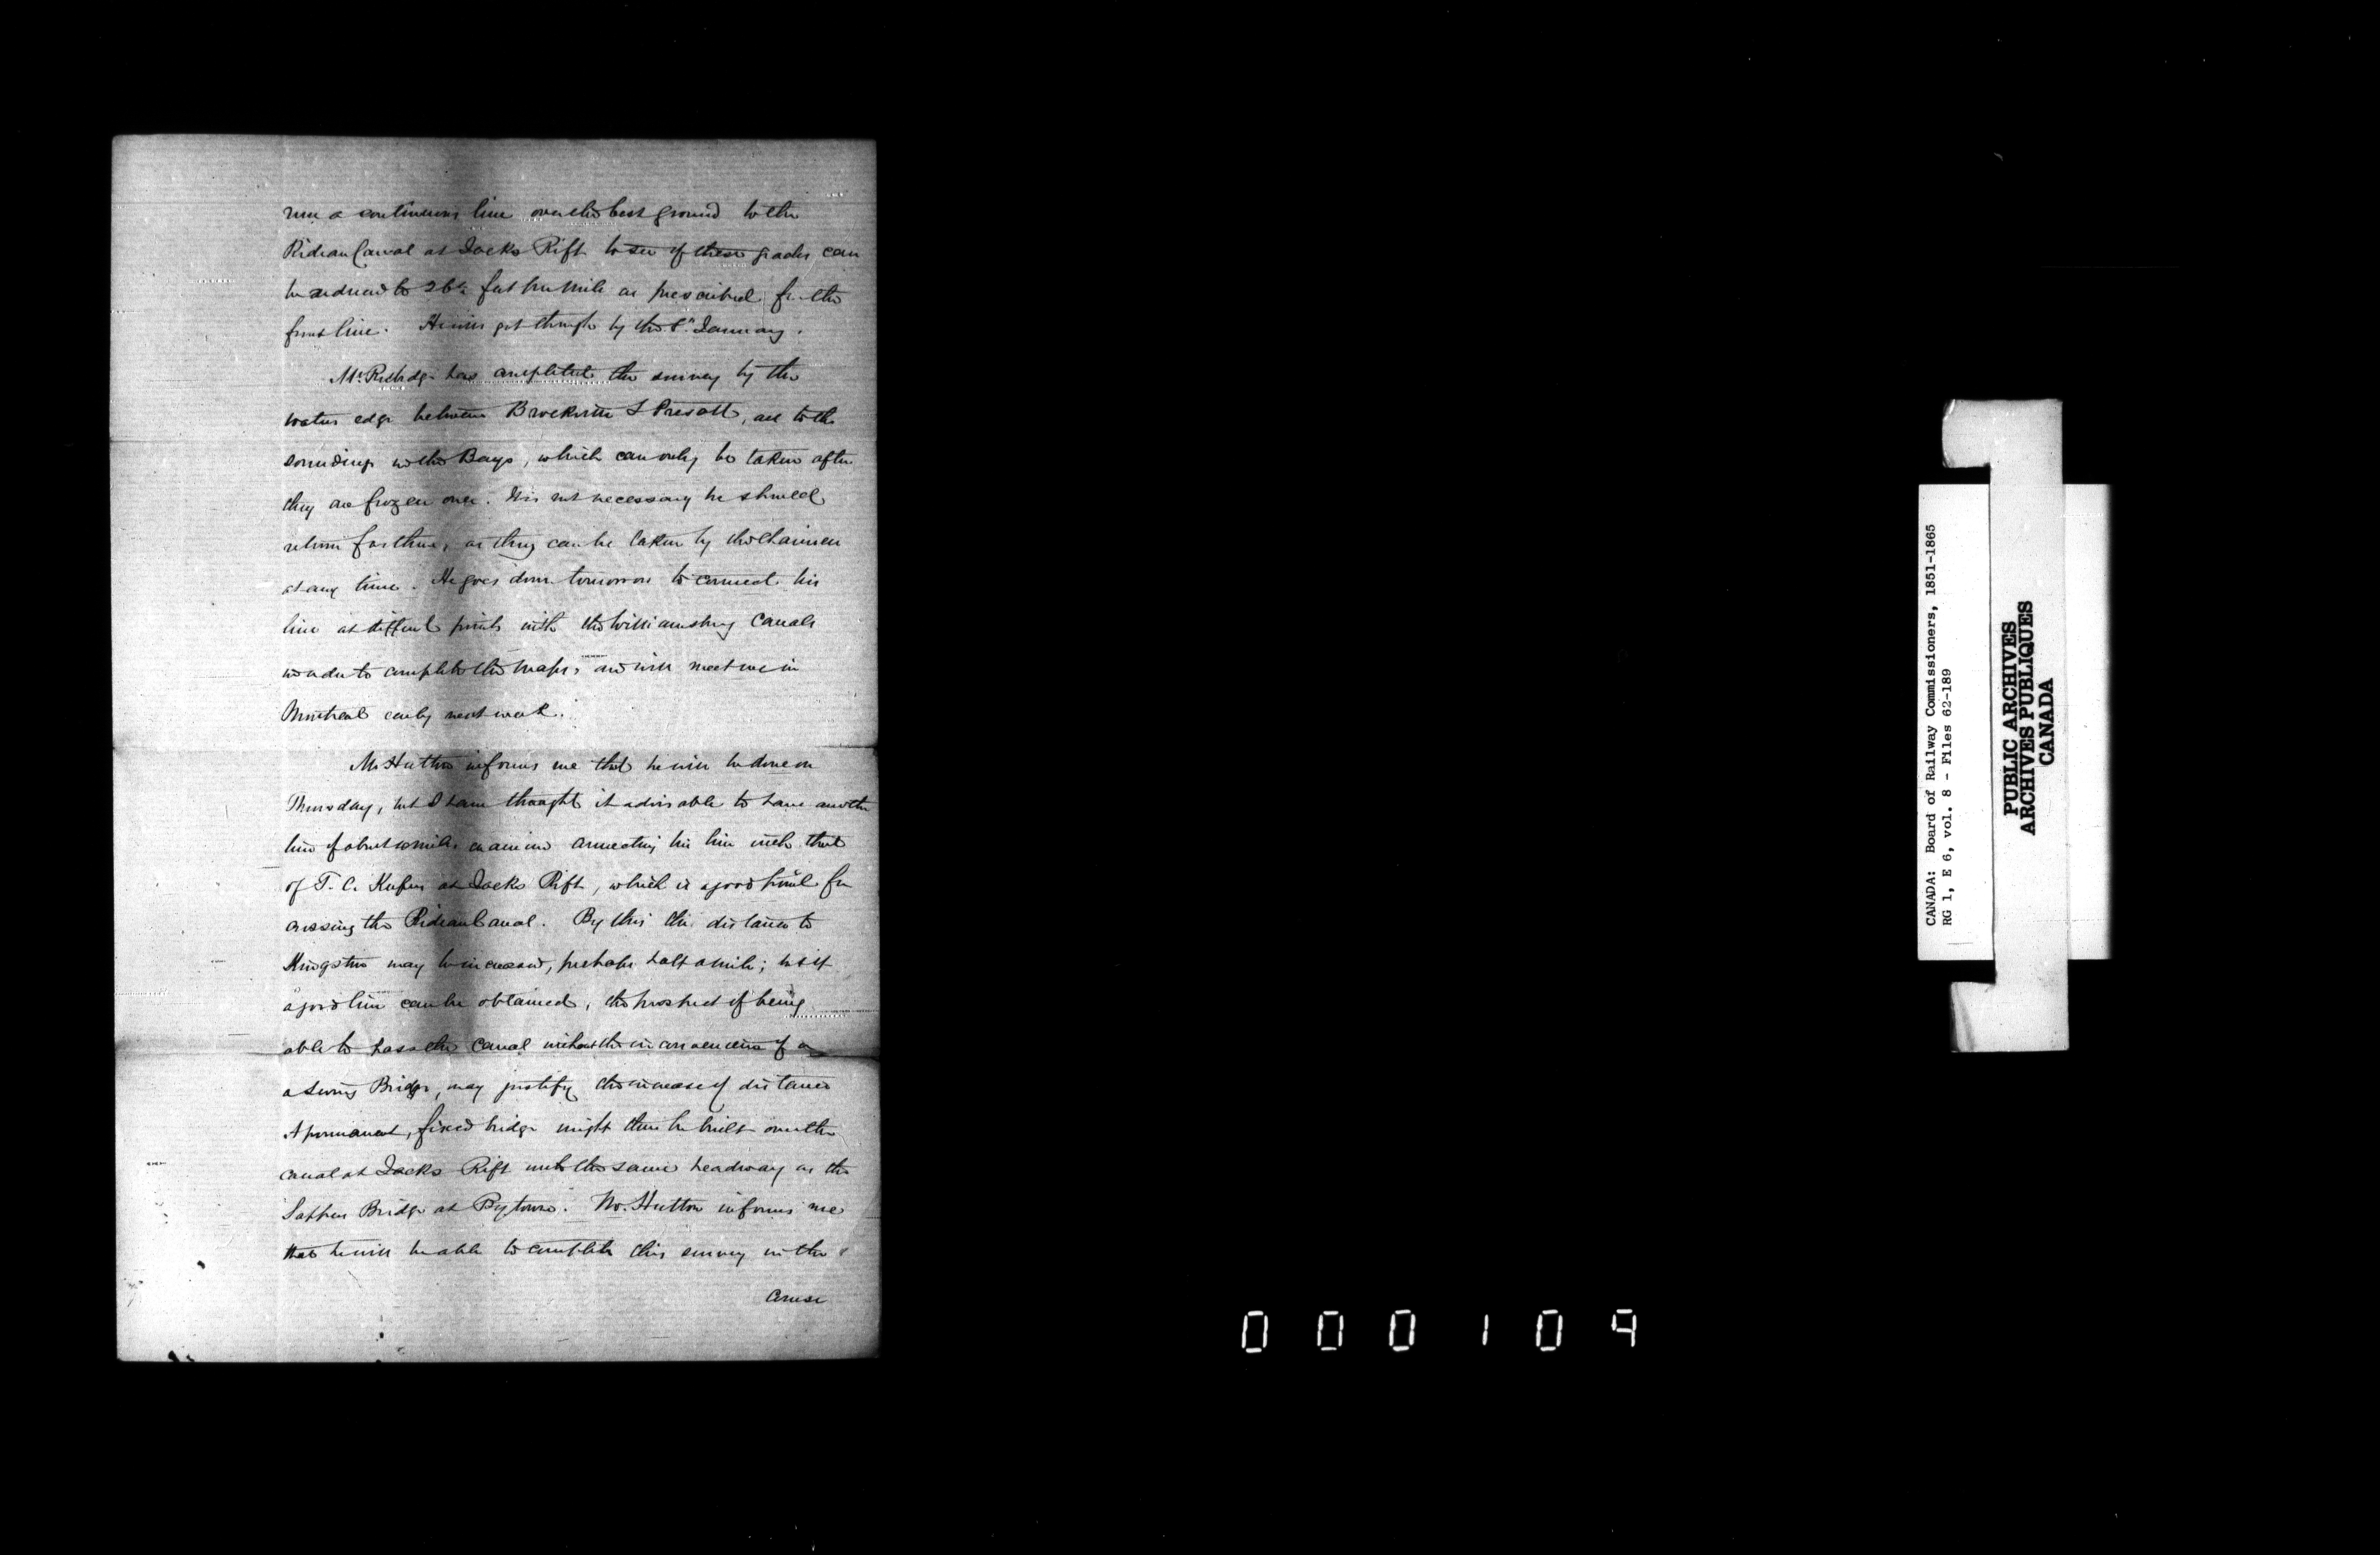 run a continuous line over the best ground to the
Rideau Canal at Jacks Rift to see if these grades can
be reduced to 26 feet per mile as prescribed for the
front line. He will get through by the 1st January.
Mr. has completed the survey by the
waters edge between Brockville & Prescott, all to the
soundings in the Bays, which can only be taken after
they are frozen over. It is not necessary he should
return for these, as they can be taken by the chainmen
at any time. He goes down tomorrow to connect his
line at different points with the Williamsburg Canals
in order to complete the maps, and will meet me in
Montreal early next week.
Mr Hutton informs me that he will be done on
Thursday, but I have thought it advisable to have another
line of about miles examined connecting his line with that
of T. C. Keefer at Jacks Rift, which is a good point for
crossing the Rideau Canal. By this the distance to
Kingston may be increased, perhaps half a mile; but if
a good line can be obtained, the prospect of being
able to pass the canal without the inconvenience of a
a Swing Bridge, may justify the increase of distance
A permanent, fixed bridge might then be built over the
canal at Jacks Rift with the same headway as the
Sappers Bridge at Bytown. Mr. Hutton informs me
that he will be able to complete this survey in the
course
CANADA: Board of Railway Commissioners, 1851-1865
RG 1, E 6, vol. 8 - Files 62-189
PUBLIC ARCHIVES
ARCHIVES PUBLIQUES
CANADA
000109